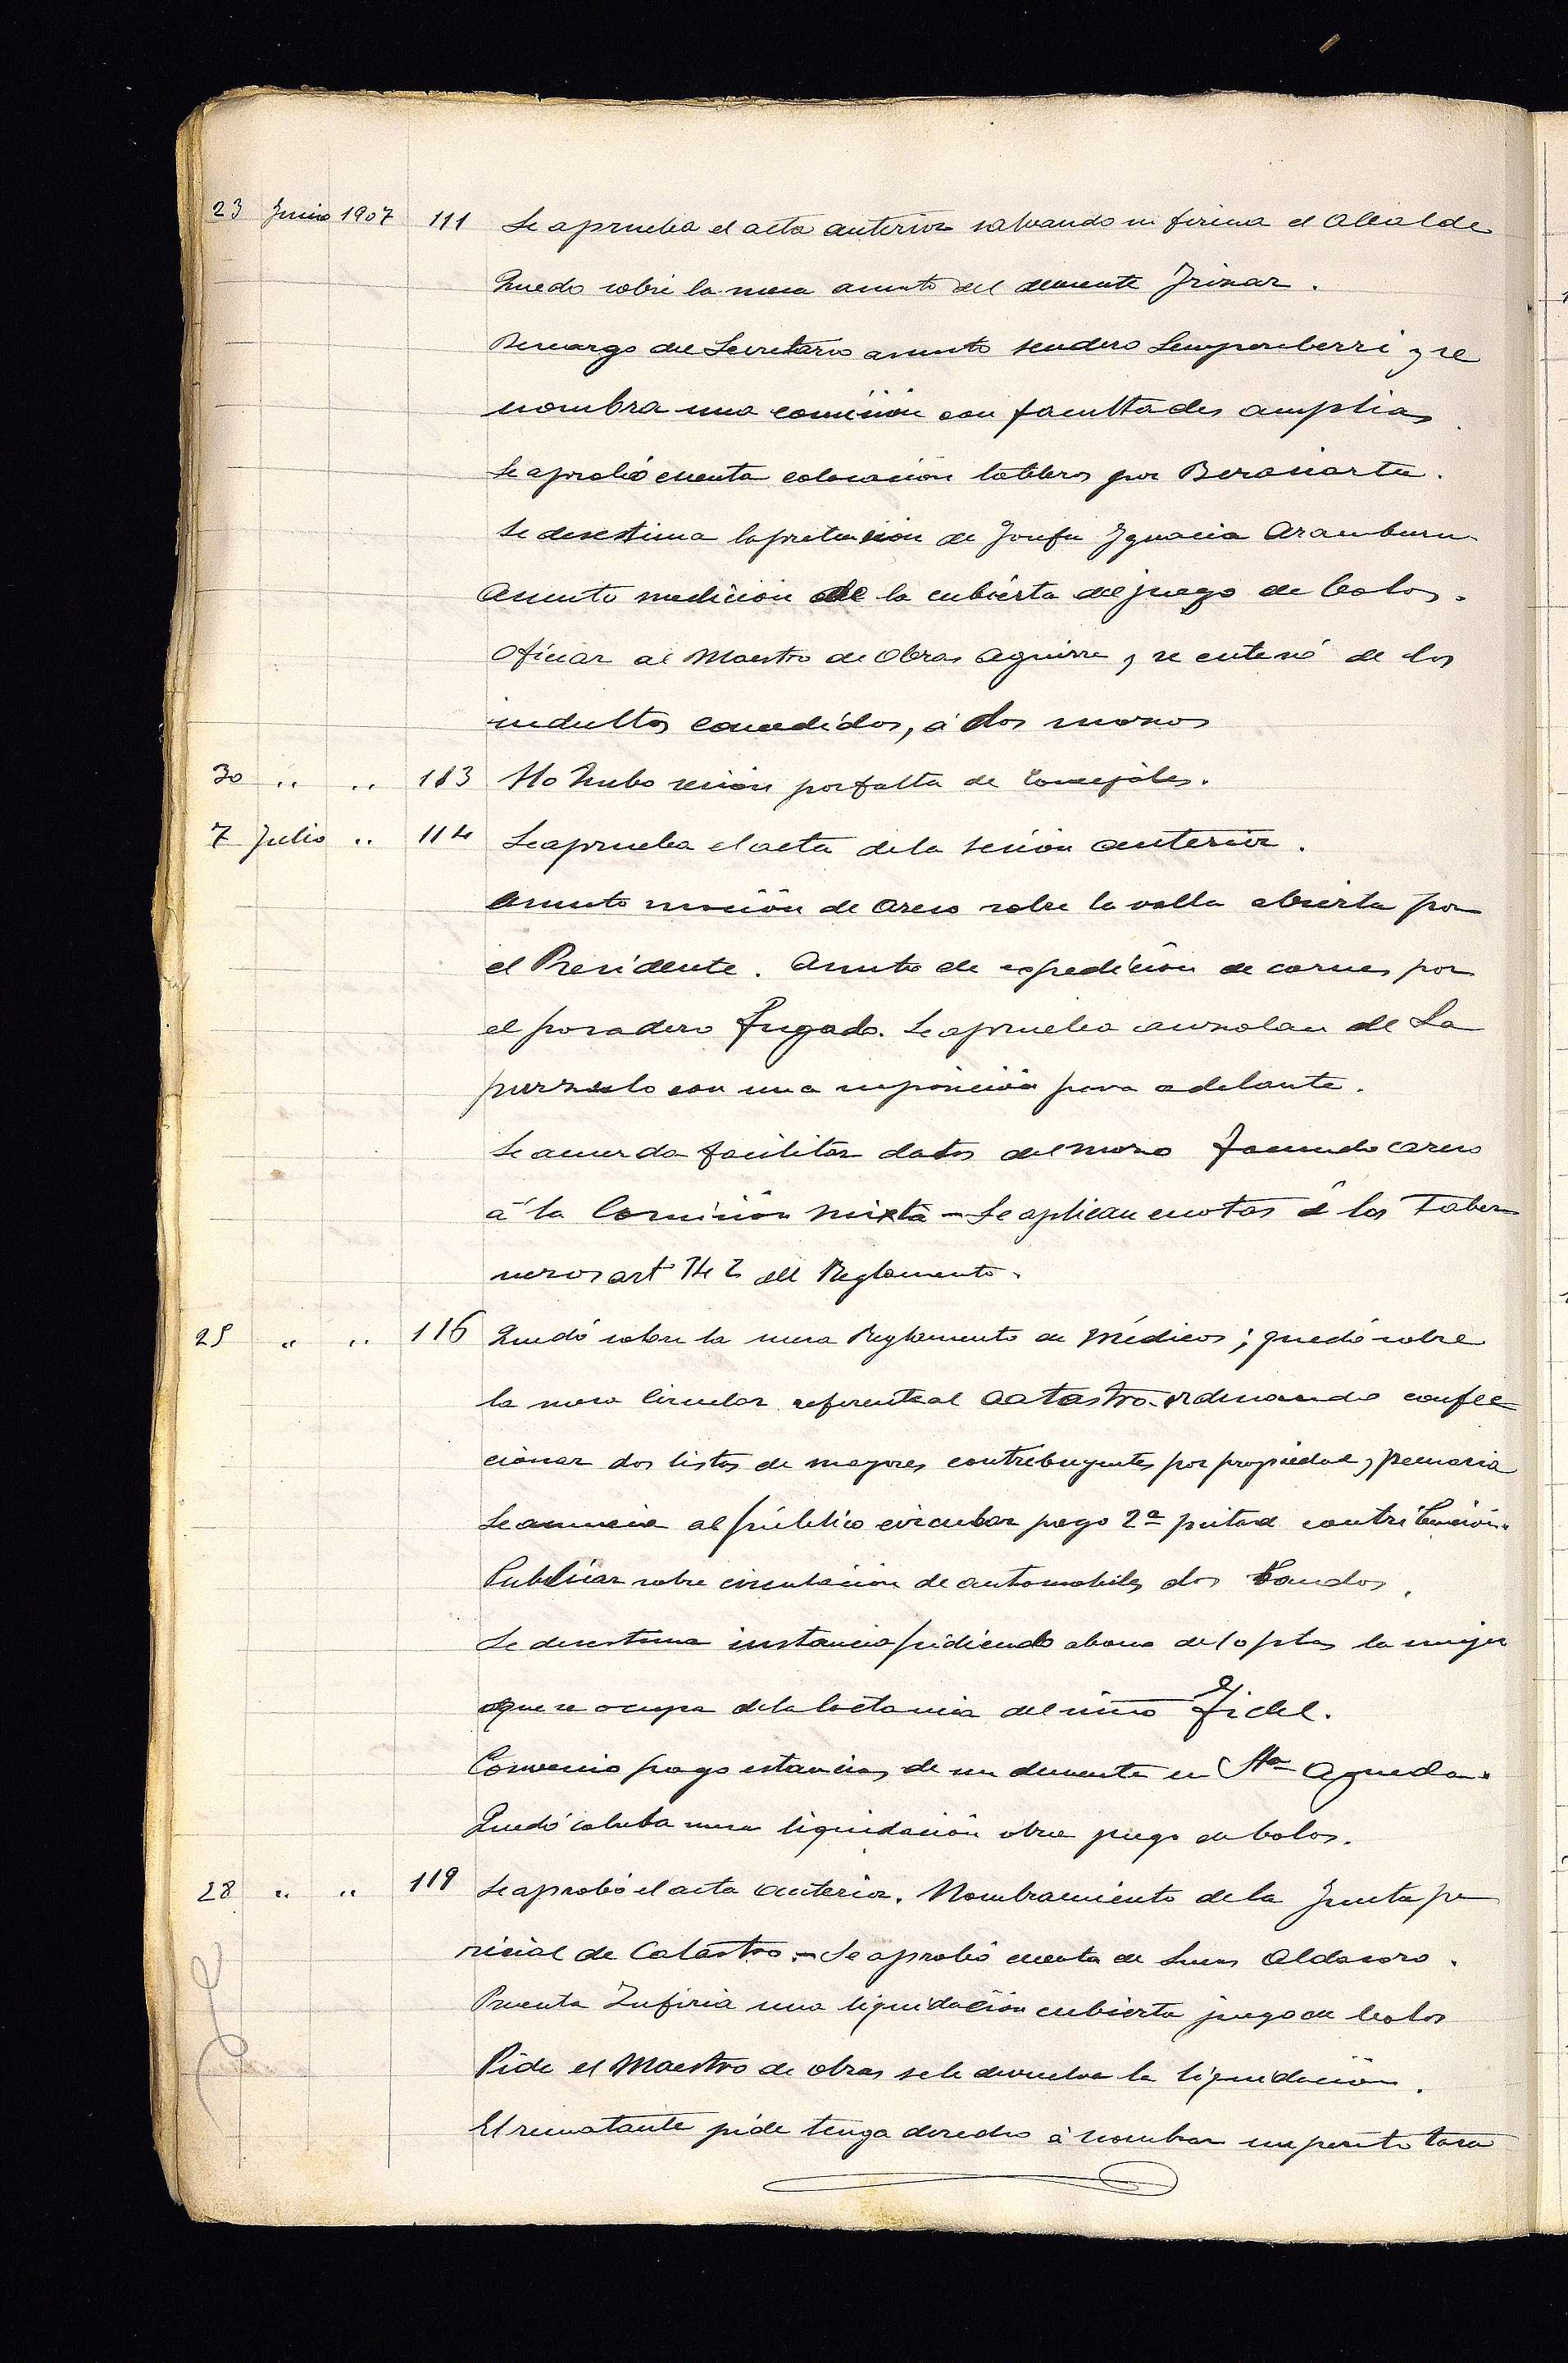 23 Junio 1907 111 Se aprueba el acta anterior salvando su firma el Alcalde
Quedo sobre la mesa asunto del demente Irizar.
Descargo del Secretario asunto sendero y se
nombra una comisión con facultades amplias
Se aprobó cuenta colocación tableros por Berasiartu.
Se desestima la pretensión de Josefa Ignacia Aramburu
Asunto medición de la cubierta del juego de bolos.
Oficiar al Maestro de Obras Aguirre y se enteró de los
indultos concedidos, á dos mozos
30 " " 113 No hubo sesión por falta de Concejales.
7 Julio " 114 Se aprueba el acta de la sesión anterior.
Asunto moción de Areso sobre la valla abierta por
el Presidente. Asunto de expedición de carnes por
el posadero Fugado. Se aprueba de La
con una imposición para adelante.
Se acuerda facilitar datos del mozo Facundo Careso
á la Comisión mixta - Se aplican cuotas á los Taber
neros art 142 del Reglamento.
25 " " 116 Quedó sobre la mesa Reglamento de Médicos; quedó sobre
la mesa Circular referente al Catastro. ordenando confec
cionar dos listas de mayores contribuyentes por propiedad y pecuaria
Se anuncia al público circular pago 2ª mitad contribución.
Publicar sobre circulación de automobiles dos bandos.
Se desestima instancia pidiendo abono de 10 ptas la mujer
que se ocupa de la lactancia del niño Fidel.
Convenio pago estancias de un demente en Sta Agueda.
Quedó sobre la mesa liquidación obra juego de bolos.
28 " " 119 Se aprobó el acta anterior. Nombramiento de la Junta pe
ricial de Catastro. - Se aprobó cuenta de Lucas Aldasoro.
Presenta Zufiria una liquidación cubierta juego de bolos
Pide el Maestro de obras se le devuelva la liquidación.
El rematante pide tenga derecho á nombrar un perito tasa